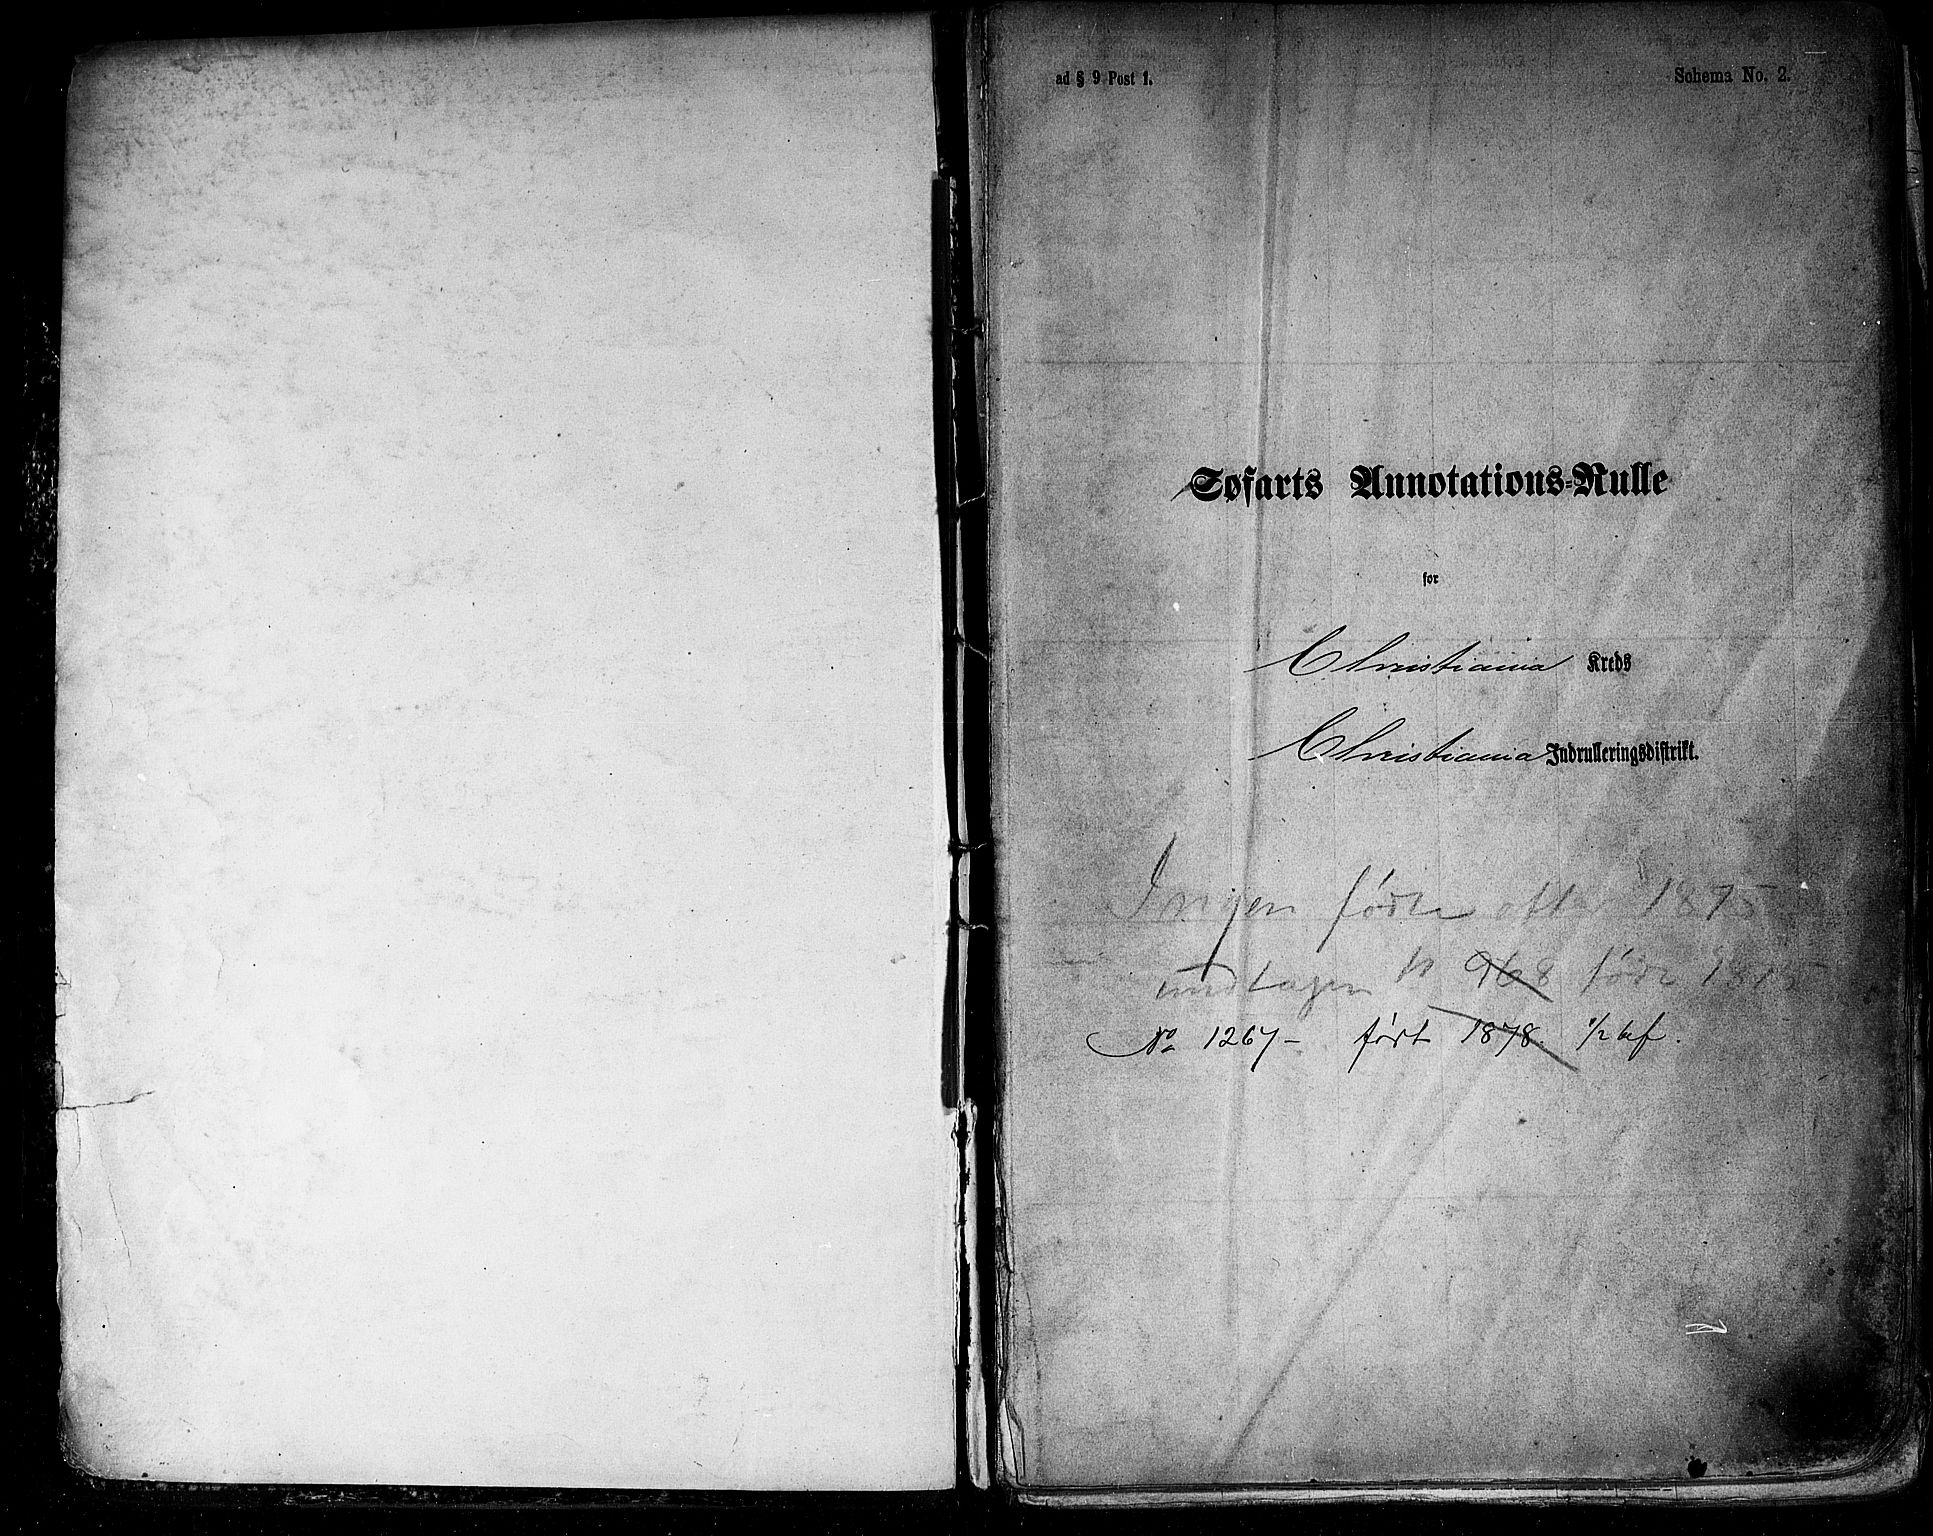 ad § 9 Post 1.
Schema No. 2.
Søfarts Annotations-Rulle
for
Christiania Kreds
Christiania Indrulleringsdistrikt.
Ingen født efter 1875
undtagen № 968 født
№ 1267 – født 1878.